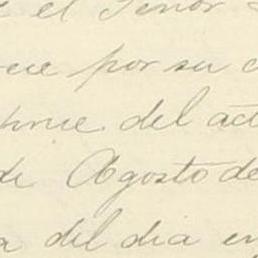 el Señor
por su
del act
de Agosto de
del dia en